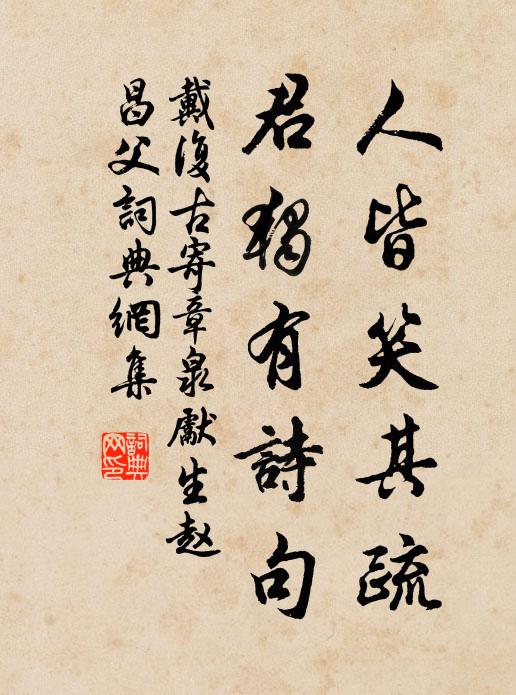 人皆笑其疏
君獨有詩句
戴復古寄章泉獻生赵
昌父詞典網集
詞典网印